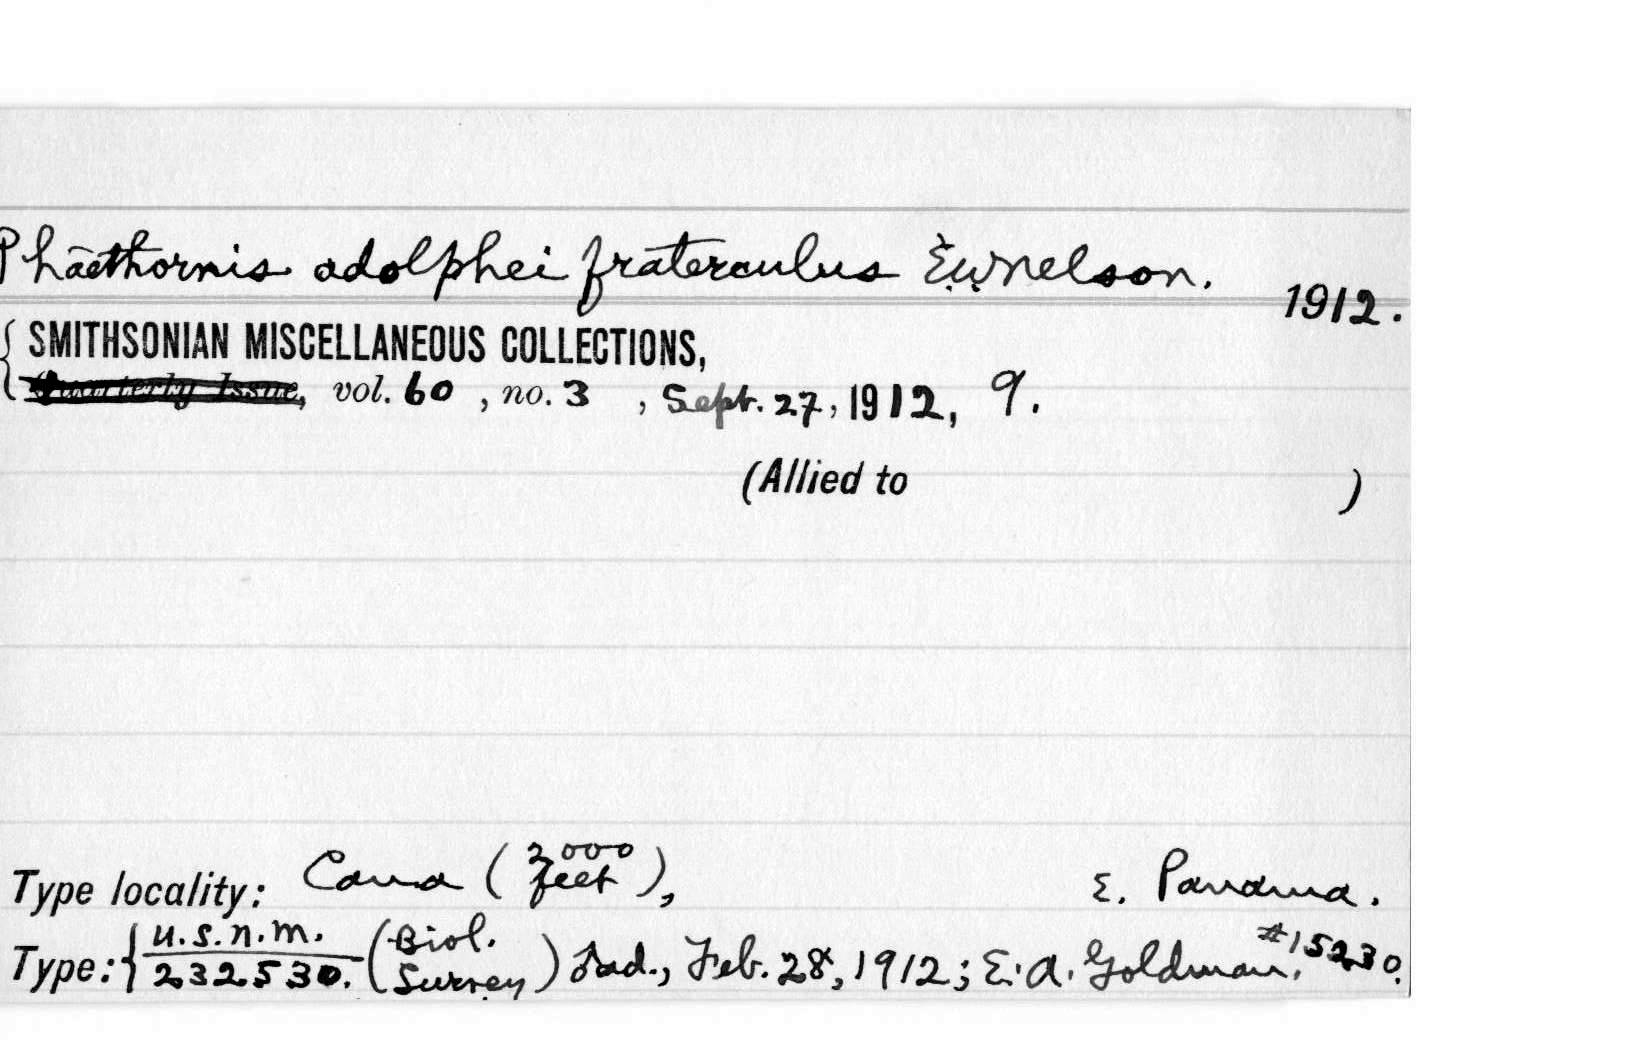 Phaethornis adolphei fraterculus E.W. Nelson.
1912.
{ SMITHSONIAN MISCELLANEOUS COLLECTIONS,
Quarterly Issue, vol. 60 , no. 3 , Sept. 27, 1912, 9.
(Allied to )
Type locality: Cana ( 2000 feet ), E. Panama.
Type: { U.S.N.M. 232530. (Biol. Survey) ad., Feb. 28, 1912; E.A. Goldman, #15230.